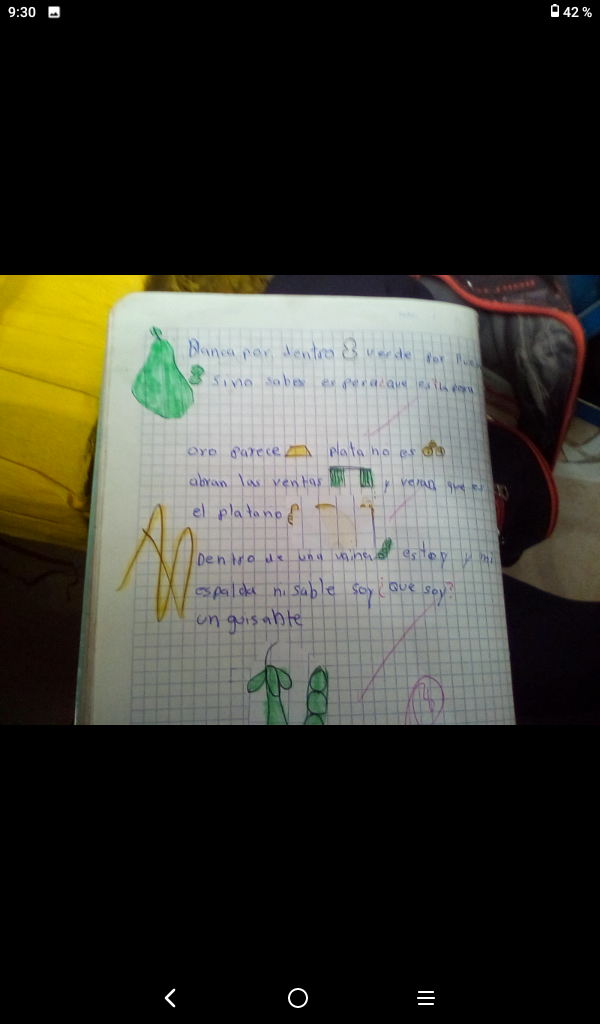 9:30
42 %
Blanca por dentro verde por fuera
si no sabes espera ¿que es? la pera
oro parece plata no es
abran las ventas y veras que es
el platano
Dentro de una vaina estoy y ni
espalda ni sable soy ¿Que soy?
un guisante